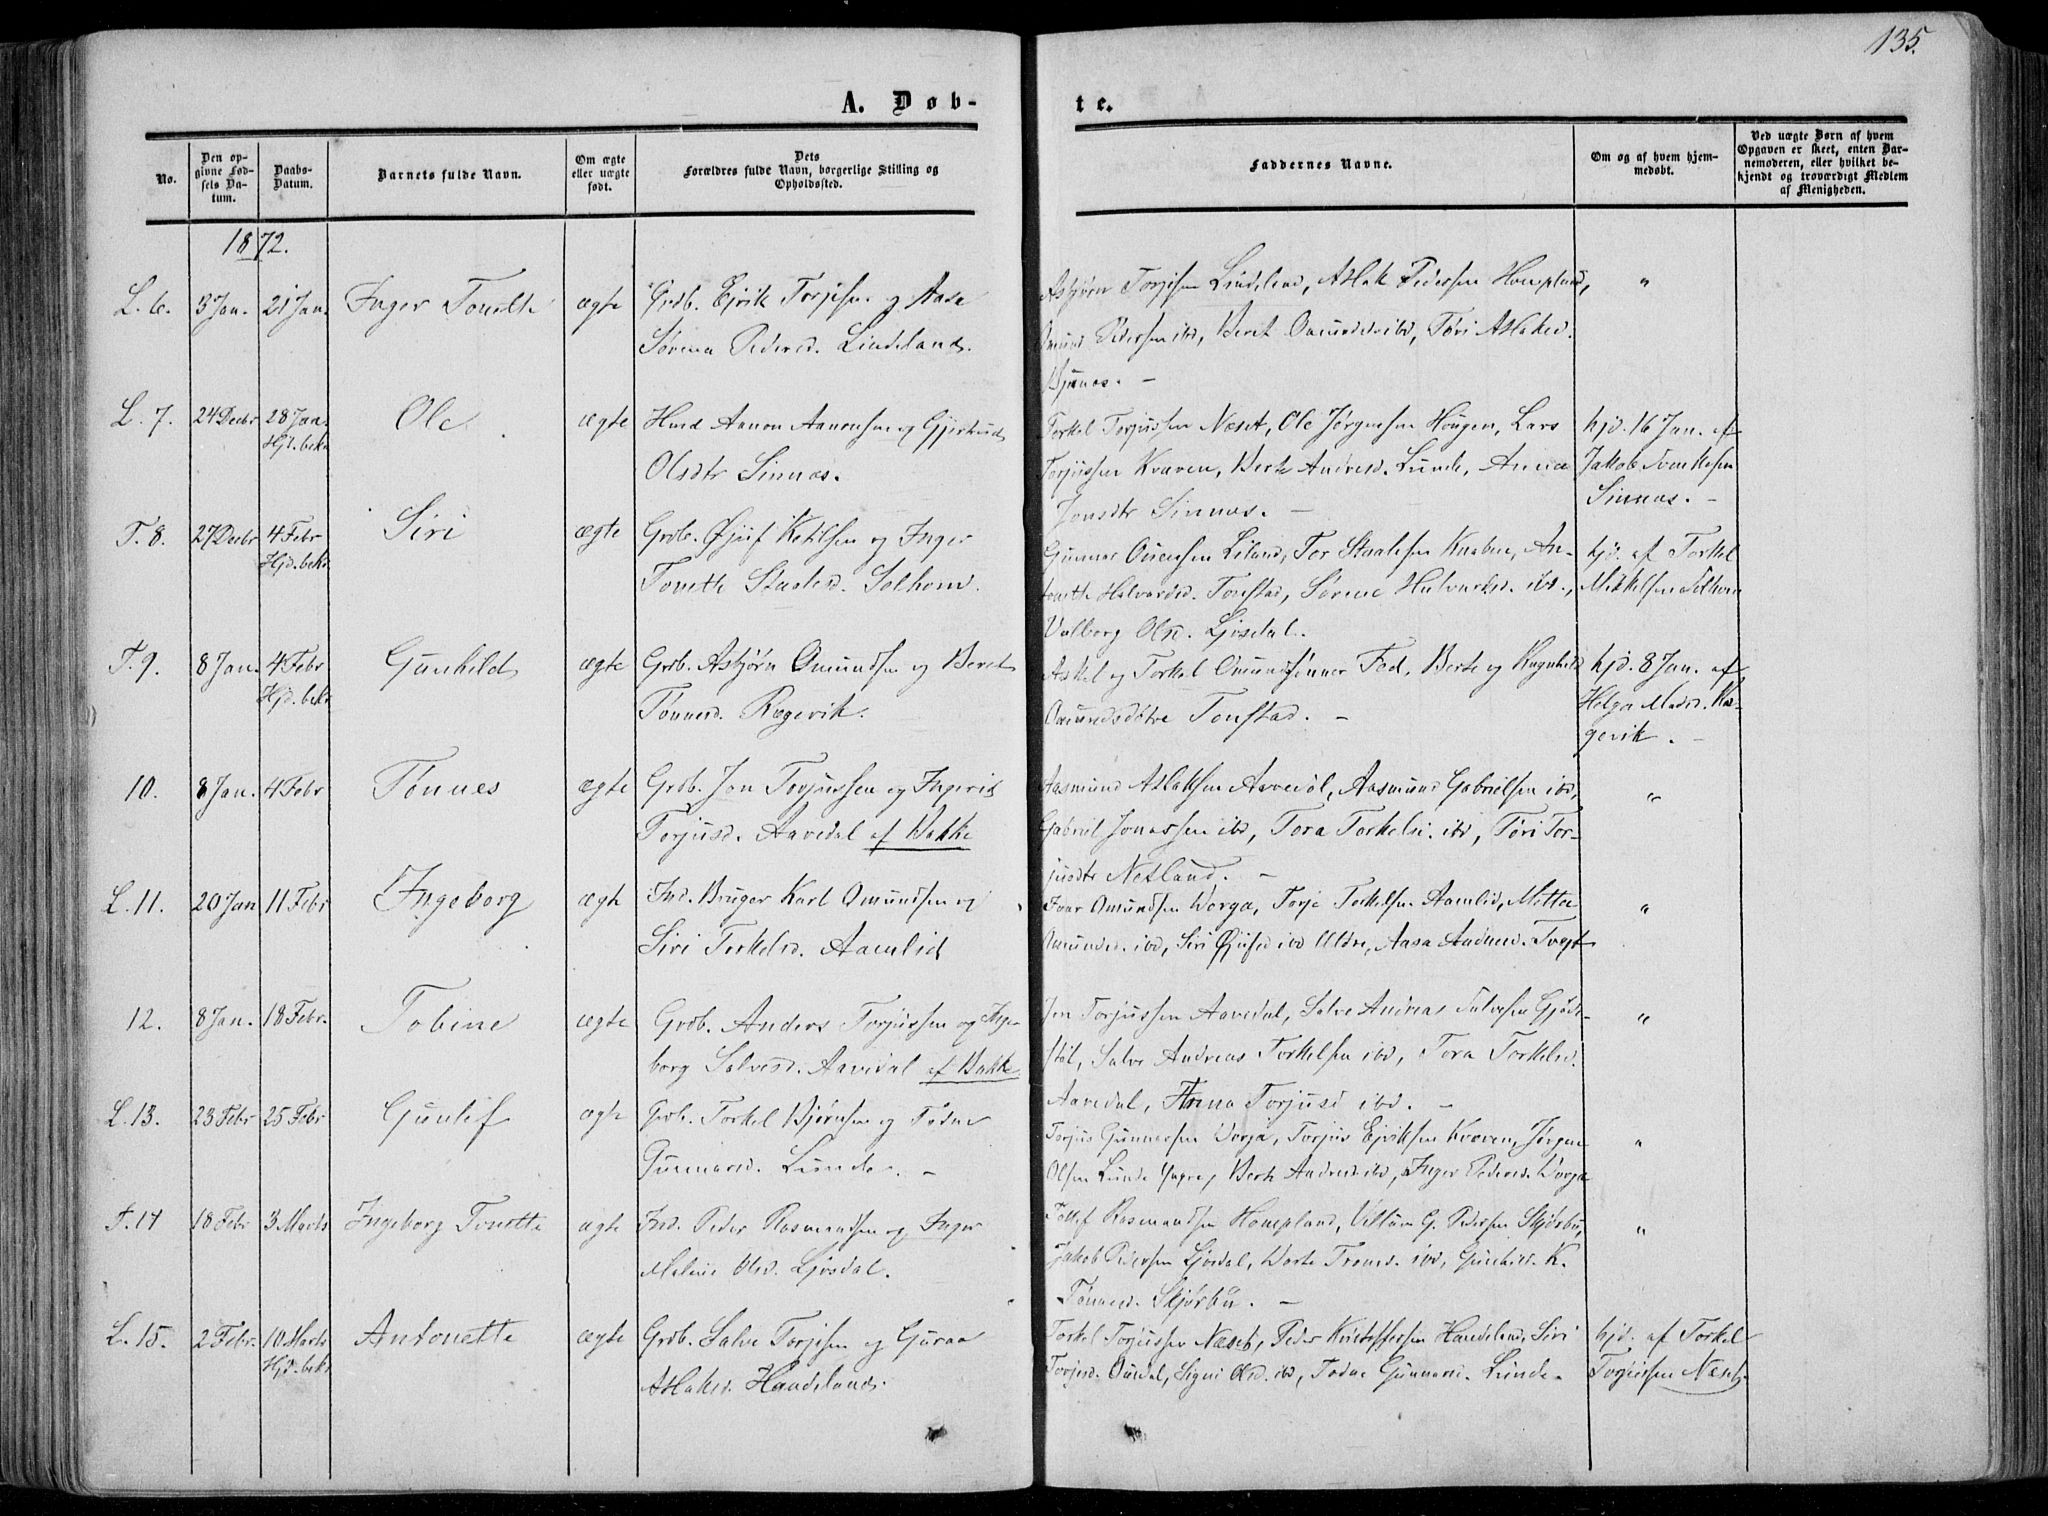 135.
A. Døb-
te.
No.
Den op-
givne Fød-
sels Da-
tum.
Daabs-
Datum.
Barnets fulde Navn.
Om ægte
eller uægte
født.
Dets
Forældres fulde Navn, borgerlige Stilling og
Opholdssted.
Faddernes Navne.
Om og af hvem hjem-
medøbt.
Ved uægte Børn af hvem
Opgaven er skeet, enten Bar-
nemoderen, eller hvilket be-
kjendt og troværdigt Medlem
af Menigheden.
1872.
L. 6. 3 Jan. 21 Jan. Inger Tonette ægte Grdb. Ejvik Torjesen og Aasa
Sørena Pedersd. Lindeland.
Asbjørn Torjesen Lindeland, Aslak Pedersen Hompland, "
Omund Pedersen ibd, Beret Omundsd ibd, Tøri Aslaksd.
Bjunes. -
L. 7. 24 Decbr 28 Jan. Hjd. bekr. Ole ægte Husd Aanon Aanonsen og Gjertrud
Olsdtr Sinnes.
Torkel Torjussen Næset, Ole Jørgensen Haugen, Lars
Torjussen Kvæven, Berte Andreasd. Lunde, Anna
Jonsdtr Sinnes. -
hjd. 16 Jan. af
Jakob
Sinnes. -
T. 8. 27 Decbr 4 Febr Hjd. bekr. Siri ægte Grdb. Øjuf Ketilsen og Inger
Tonette Staalesd. Solhom.
Gunnar Ouensen Liland, Tor Staalesen Knaben, An-
tonette Halvorsd. Tonstad, Sørene Halvorsd. ibd.,
Valborg Olsd. Ljosdal.
hjd. af Torkel
Mikkelsen Solhom
T. 9. 8 Jan. 4 Febr Hjd. bekr. Gunhild ægte Grdb. Asbjørn Omundsen og Beret
Tønnesd. Rægevik.
Askel og Torkel Omundsønner Fed, Berte og Ragnhild
Omundsdøtre Tonstad. -
hjd. 8 Jan. af
Helga Madsd. Ræ-
gevik. -
10. 8 Jan. 4 Febr Tønnes ægte Grdb. Jon Torjussen og Ingerid
Torjusd. Aavedal af Bakke
Aasmund Aslaksen Aavedal, Aasmund Gabrielsen ibd, "
Gabriel Jonassen ibd, Tora Torkelsd. ibd, Tøri Tor-
jusdtr Netland. -
L. 11. 20 Jan 11 Febr Ingeborg ægte Ind. Bruger Karl Omundsen og
Siri Torkelsd. Aamlid
Ivar Omundsen Dorga, Torje Torkelsen Aamlid, Mette "
Omundsd. ibd, Siri Øjufsd ibd Aldre, Aasa Andreasd.
12. 8 Jan. 18 Febr. Tobine ægte Grdb. Anders Torjussen og Inge-
borg Salvesd. Aavedal af Bakke
Jon Torjussen Aavedal, Salve Andreas Salvesen Gjøds- "
støl, Salve Andreas Torkelsen ibd, Tora Torkelsd.
Aavedal, Anna Torjusd ibd. -
L. 13. 23 Febr 25 Febr Gunlef ægte Grdb. Torkel Bjørnsen og Todne
Gunnarsd. Lunde. -
Torjus Gunnersen Dorga, Torjus Ejviksen Kvæven, Jørgen "
Olsen Lunde Yngre, Berte Andreasd ibd, Inger Pedersd. Dorga
T. 14 18 Febr 3 Marts Ingeborg Tonette ægte Ind. Peder Rasmundsen og Inger
Malene Olsd. Ljosdal.
Tollef Rasmundsen Hompland, Villum G. Pedersen Skjørbu, "
Jakob Pedersen Ljosdal, Dorte Tronsd. ibd, Gunhild K.
Tønnesd. Skjørbu. -
L. 15. 2 Febr. 10 Marts Hjd. bekr. Antonette ægte Grdb. Salve Torjesen og Guraa
Aslaksd. Handeland.
Torkel Torjussen Næset, Peder Kristoffersen Handeland, Siri
Torjusd. Ousdal, Signi Olsd. ibd, Todne Gunnarsd. Lunde.
hjd. af Torkel
Torjussen Næset.